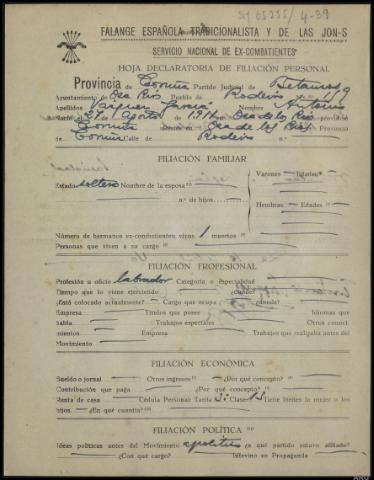 SJ 05255/4-39
FALANGE ESPAÑOLA TRADICIONALISTA Y DE LAS JON-S
SERVICIO NACIONAL DE EX-COMBATIENTES
HOJA DECLARATORIA DE FILIACIÓN PERSONAL
Provincia de Coruña Partido Judicial de Betanzos
Ayuntamiento de Oza Rios Pueblo de Rodeiro
Apellidos Vazquez García Nombre Antonio
Nació el 27 Agosto de 191 en Oza de los Rios provincia
Coruña en Oza de los Rios Provincia
de Coruña Calle de Rodeiro
FILIACIÓN FAMILIAR
Varones Edades
Estado soltero Nombre de la esposa
n.º de hijos
Hembras Edades
Número de hermanos ex-combatientes, vivos 1 muertos
Personas que viven a su cargo
FILIACIÓN PROFESIONAL
Profesión u oficio labrador Categoria o especialidad
Tiempo que lo viene ejerciendo
¿Está colocado actualmente? Cargo que ocupa ¿dónde?
Empresa Títulos que posee Idiomas que
habla Trabajos especiales Otros conoci-
mientos Empresa Trabajos que realizaba antes del
Movimiento
FILIACIÓN ECONÓMICA
Sueldo o jornal Otros ingresos ¿Por qué concepto?
Contribución que paga ¿Por qué concepto?
Renta de casa Cédula Personal: Tarifa 3ª Clase 13 Tiene bienes la mujer o los
hijos ¿En qué cuantía?
FILIACIÓN POLÍTICA
Ideas políticas antes del Movimiento apolitico ¿a qué partido estuvo afiliado?
¿Con qué cargo? Intervino en Propaganda